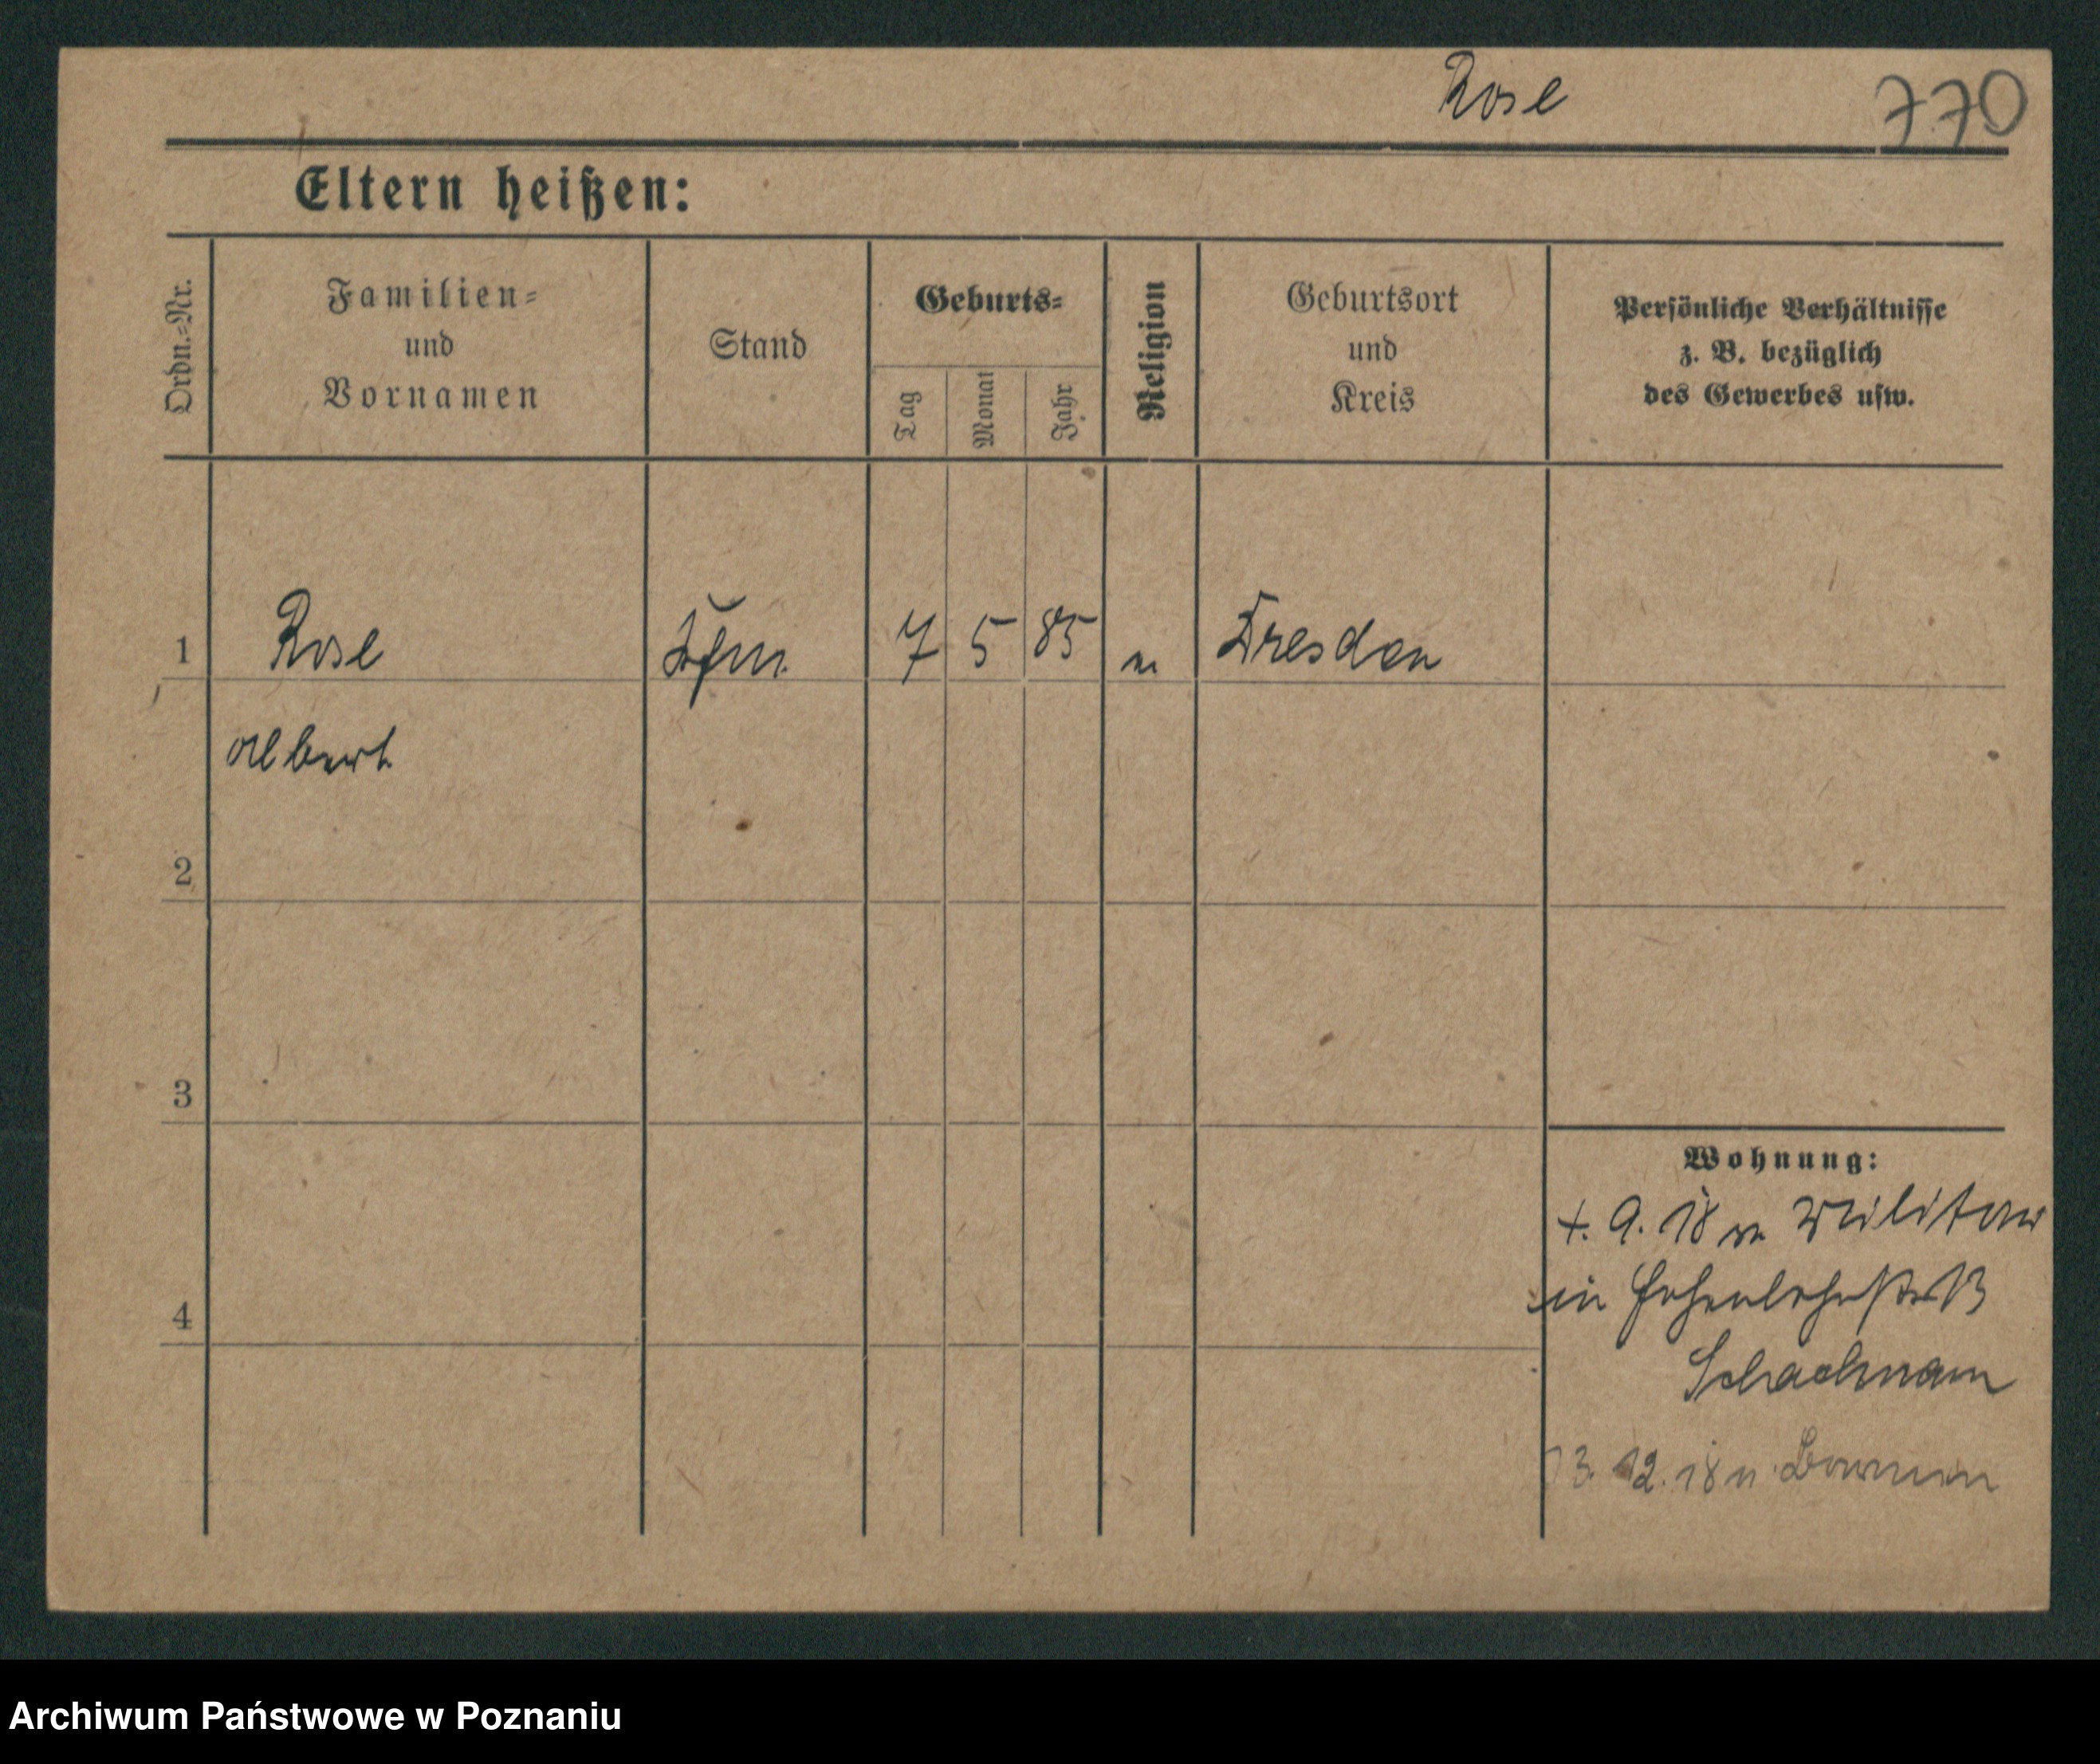 Rose 770
Eltern heißen:
Ordn.-Nr.
Familien-
und
Vornamen
Stand
Geburts-
Tag
Monat
Jahr
Religion
Geburtsort
und
Kreis
Persönliche Verhältnisse
z. B. bezüglich
des Gewerbes usw.
1 Rose Kfm. 7 5 85 Dresden
Albert
2
3
4
Wohnung:
9. 18 Militär
in 13
Schachmann
3. 12. 18 n.
Archiwum Państwowe w Poznaniu